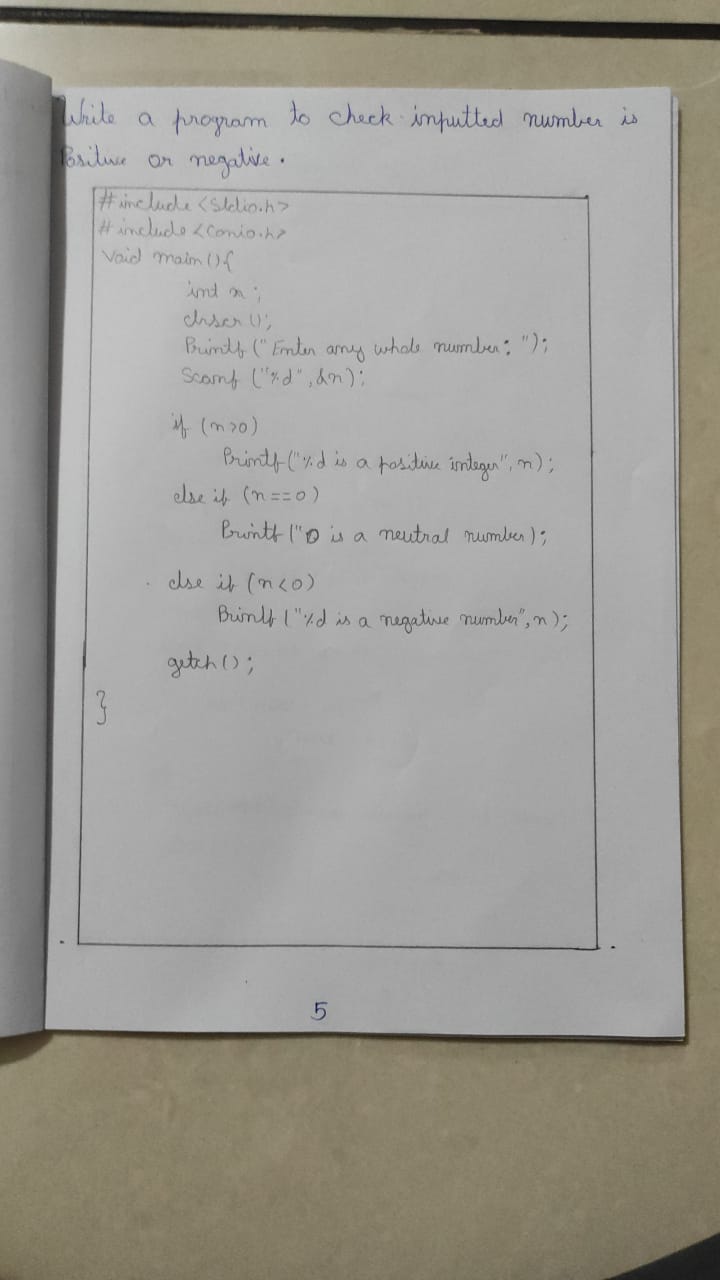 Write a program to check inputted number is
Positive or negative.
#include <Stdio.h>
#include <Conio.h>
Void main(){
int n;
clrscr();
Printf("Enter any whole number: ");
Scanf("%d", &n);
if (n>0)
Printf("%d is a positive integer", n);
else if (n==0)
Printf("0 is a neutral number);
else if (n<0)
Printf("%d is a negative number", n);
getch();
}
5